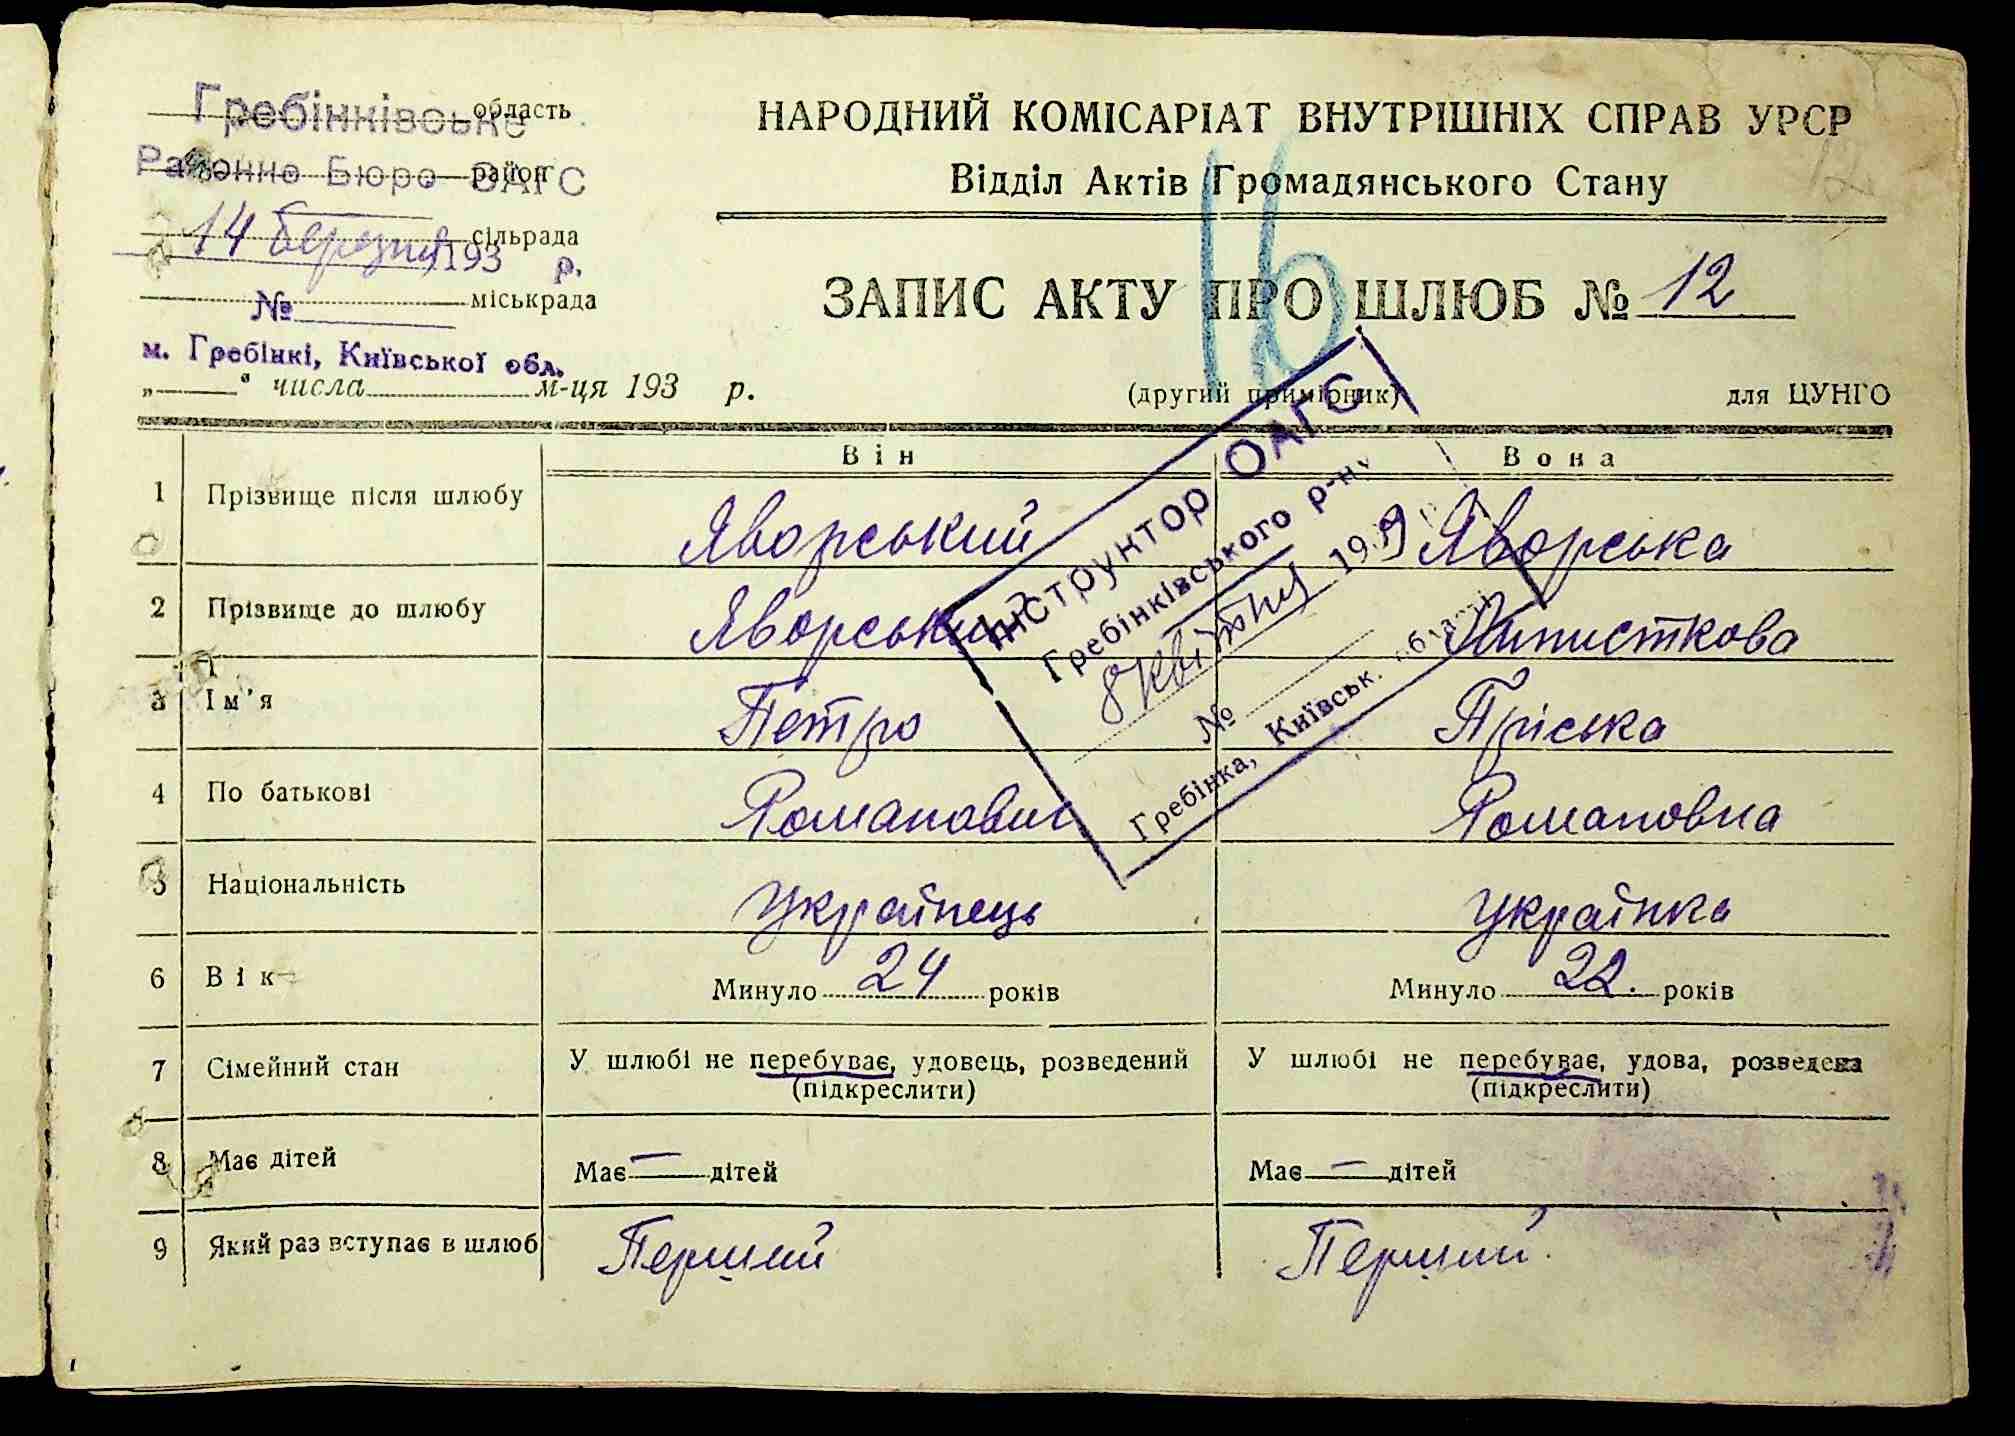 Гребінківське область
Районне Бюро ОАГС район
14 березня 193 р. сільрада
№ міськрада
м. Гребінкі, Київської обл.
„ “ числа м-ця 193 р.
НАРОДНИЙ КОМІСАРІАТ ВНУТРІШНІХ СПРАВ УРСР
Відділ Актів Громадянського Стану
16
12
ЗАПИС АКТУ ПРО ШЛЮБ № 12
(другий примірник) для ЦУНГО
Він Вона
1 Прізвище після шлюбу Яворський Яворська
2 Прізвище до шлюбу Яворський
3 Ім'я Петро Пріська
4 По батькові Романович Романовна
5 Національність Українець Українка
6 Вік Минуло 24 років Минуло 22. років
7 Сімейний стан У шлюбі не перебуває, удовець, розведений У шлюбі не перебуває, удова, розведена
(підкреслити) (підкреслити)
8 Має дітей Має — дітей Має — дітей
9 Який раз вступає в шлюб Перший Перший.
Інструктор ОАГС
Гребінківського р-ну
8 квітня 1939
№
Гребінка, Київськ.